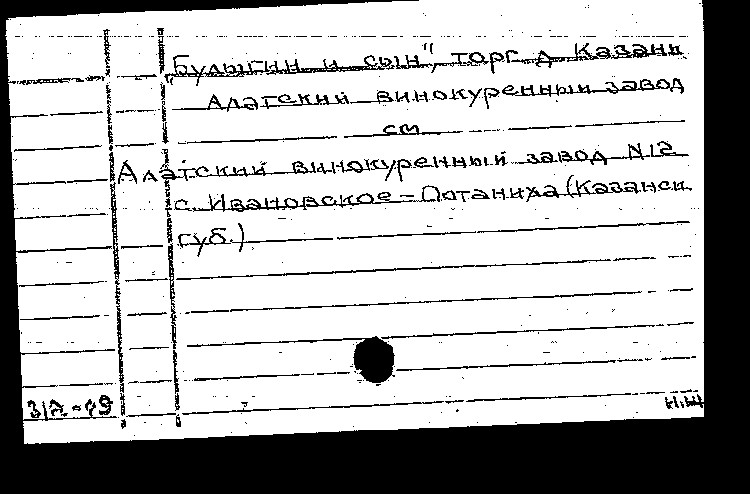 "Булыгин и сын", торг. д. Казань
Алатский винокуренный завод
см
Алатский винокуренный завод N12
с. Ивановское-Потаниха (Казанск.
губ.)
Н.Ш